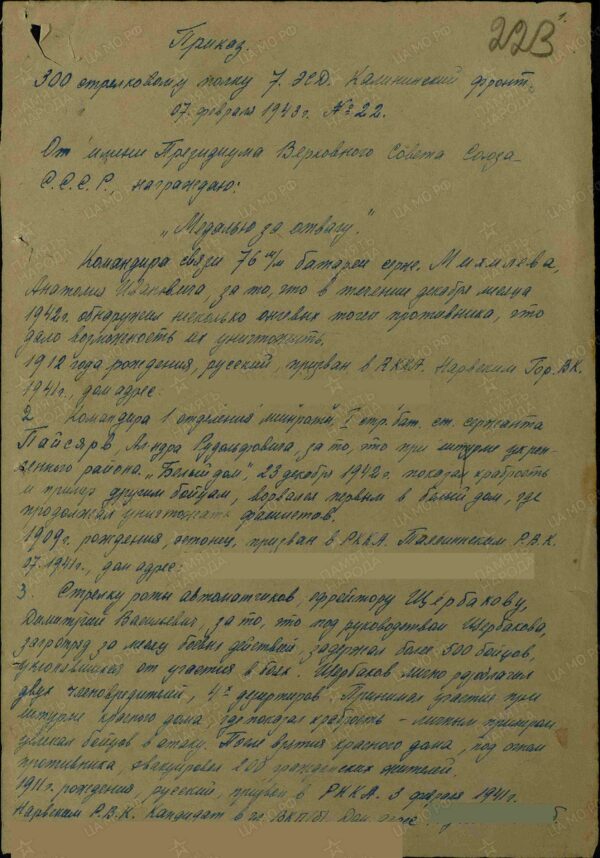 223
Приказ.
300 стрелковому полку 7. ЭСД. Калининский фронт.
07. февраля 1943 г. № 22.
От имени Президиума Верховного Совета Союза
С.С.С.Р., награждаю:
"Медалью за отвагу."
Командира связи 76 м/м батареи серж. Михмлева,
Анатолия Ивановича, за то, что в течении декабря месяца
1942 г. обнаружил несколько огневых точек противника, что
дало возможность их уничтожить.
1912 года рождения, русский, призван в РККА. Нарвским Гор. ВК.
1941 г., дом адрес:
2. Командира 1 отделения минроты, I стр. бат. ст. сержанта
Пайсярв, Рудольфовича, за то, что при штурме укреп-
ленного района "Белый дом", 23 декабря 1942 г. показал храбрость
и пример другим бойцам, ворвался первым в белый дом, где
продолжал уничтожать фашистов.
1909 г. рождения, эстонец, призван в РККА. Р.В.К.
07.1941 г., дом адрес:
3. Стрелку роты автоматчиков, ефрейтору Щербакову,
Димитрий Васильевич, за то, что под руководством Щербакова,
загротряд за месяц боевых действий, задержал более 500 бойцов,
уклонявшихся от участия в боях. Щербаков лично разоблачил
двух членовредителей, 4х дезертиров. Принимал участие при
штурме красного дома, где показал храбрость - личным примером
увлекал бойцов в атаку. После взятия красного дома, под огнем
противника, эвакуировал 208 гражданских жителей.
1911 г. рождения, русский, призван в РККА. 3 февраля 1941 г.
Нарвским Р.В.К. Кандидат в чл. ВКП(б). Дом. адрес:
ЦА МО РФ
ПАМЯТЬ НАРОДА